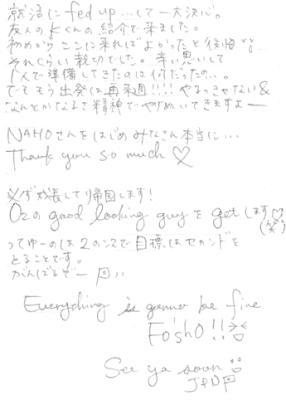 就活に fed up...して一大決心。
友人のKくんの紹介で来ました。
初めからここに来ればよかったと後悔
それくらい親切でした。辛い思いして
1人で準備してきたのは何だったの…。
でももう出発は再来週!!!! やるっきゃない&
なんとかなるさ精神でやりぬいてきますよー
NAHOさんをはじめみなさん本当に…
Thank you so much ♡
必ず成長して帰国します!
Ozの good looking guy を get します♡
(笑)
ってゆーのは2のつぎで目標はセカンドを
とることです。
がんばるぞー
Everything is gonna be fine
Fo'sho !!
See ya soon